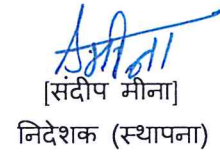 [संदीप मीना]
निदेशक (स्थापना)